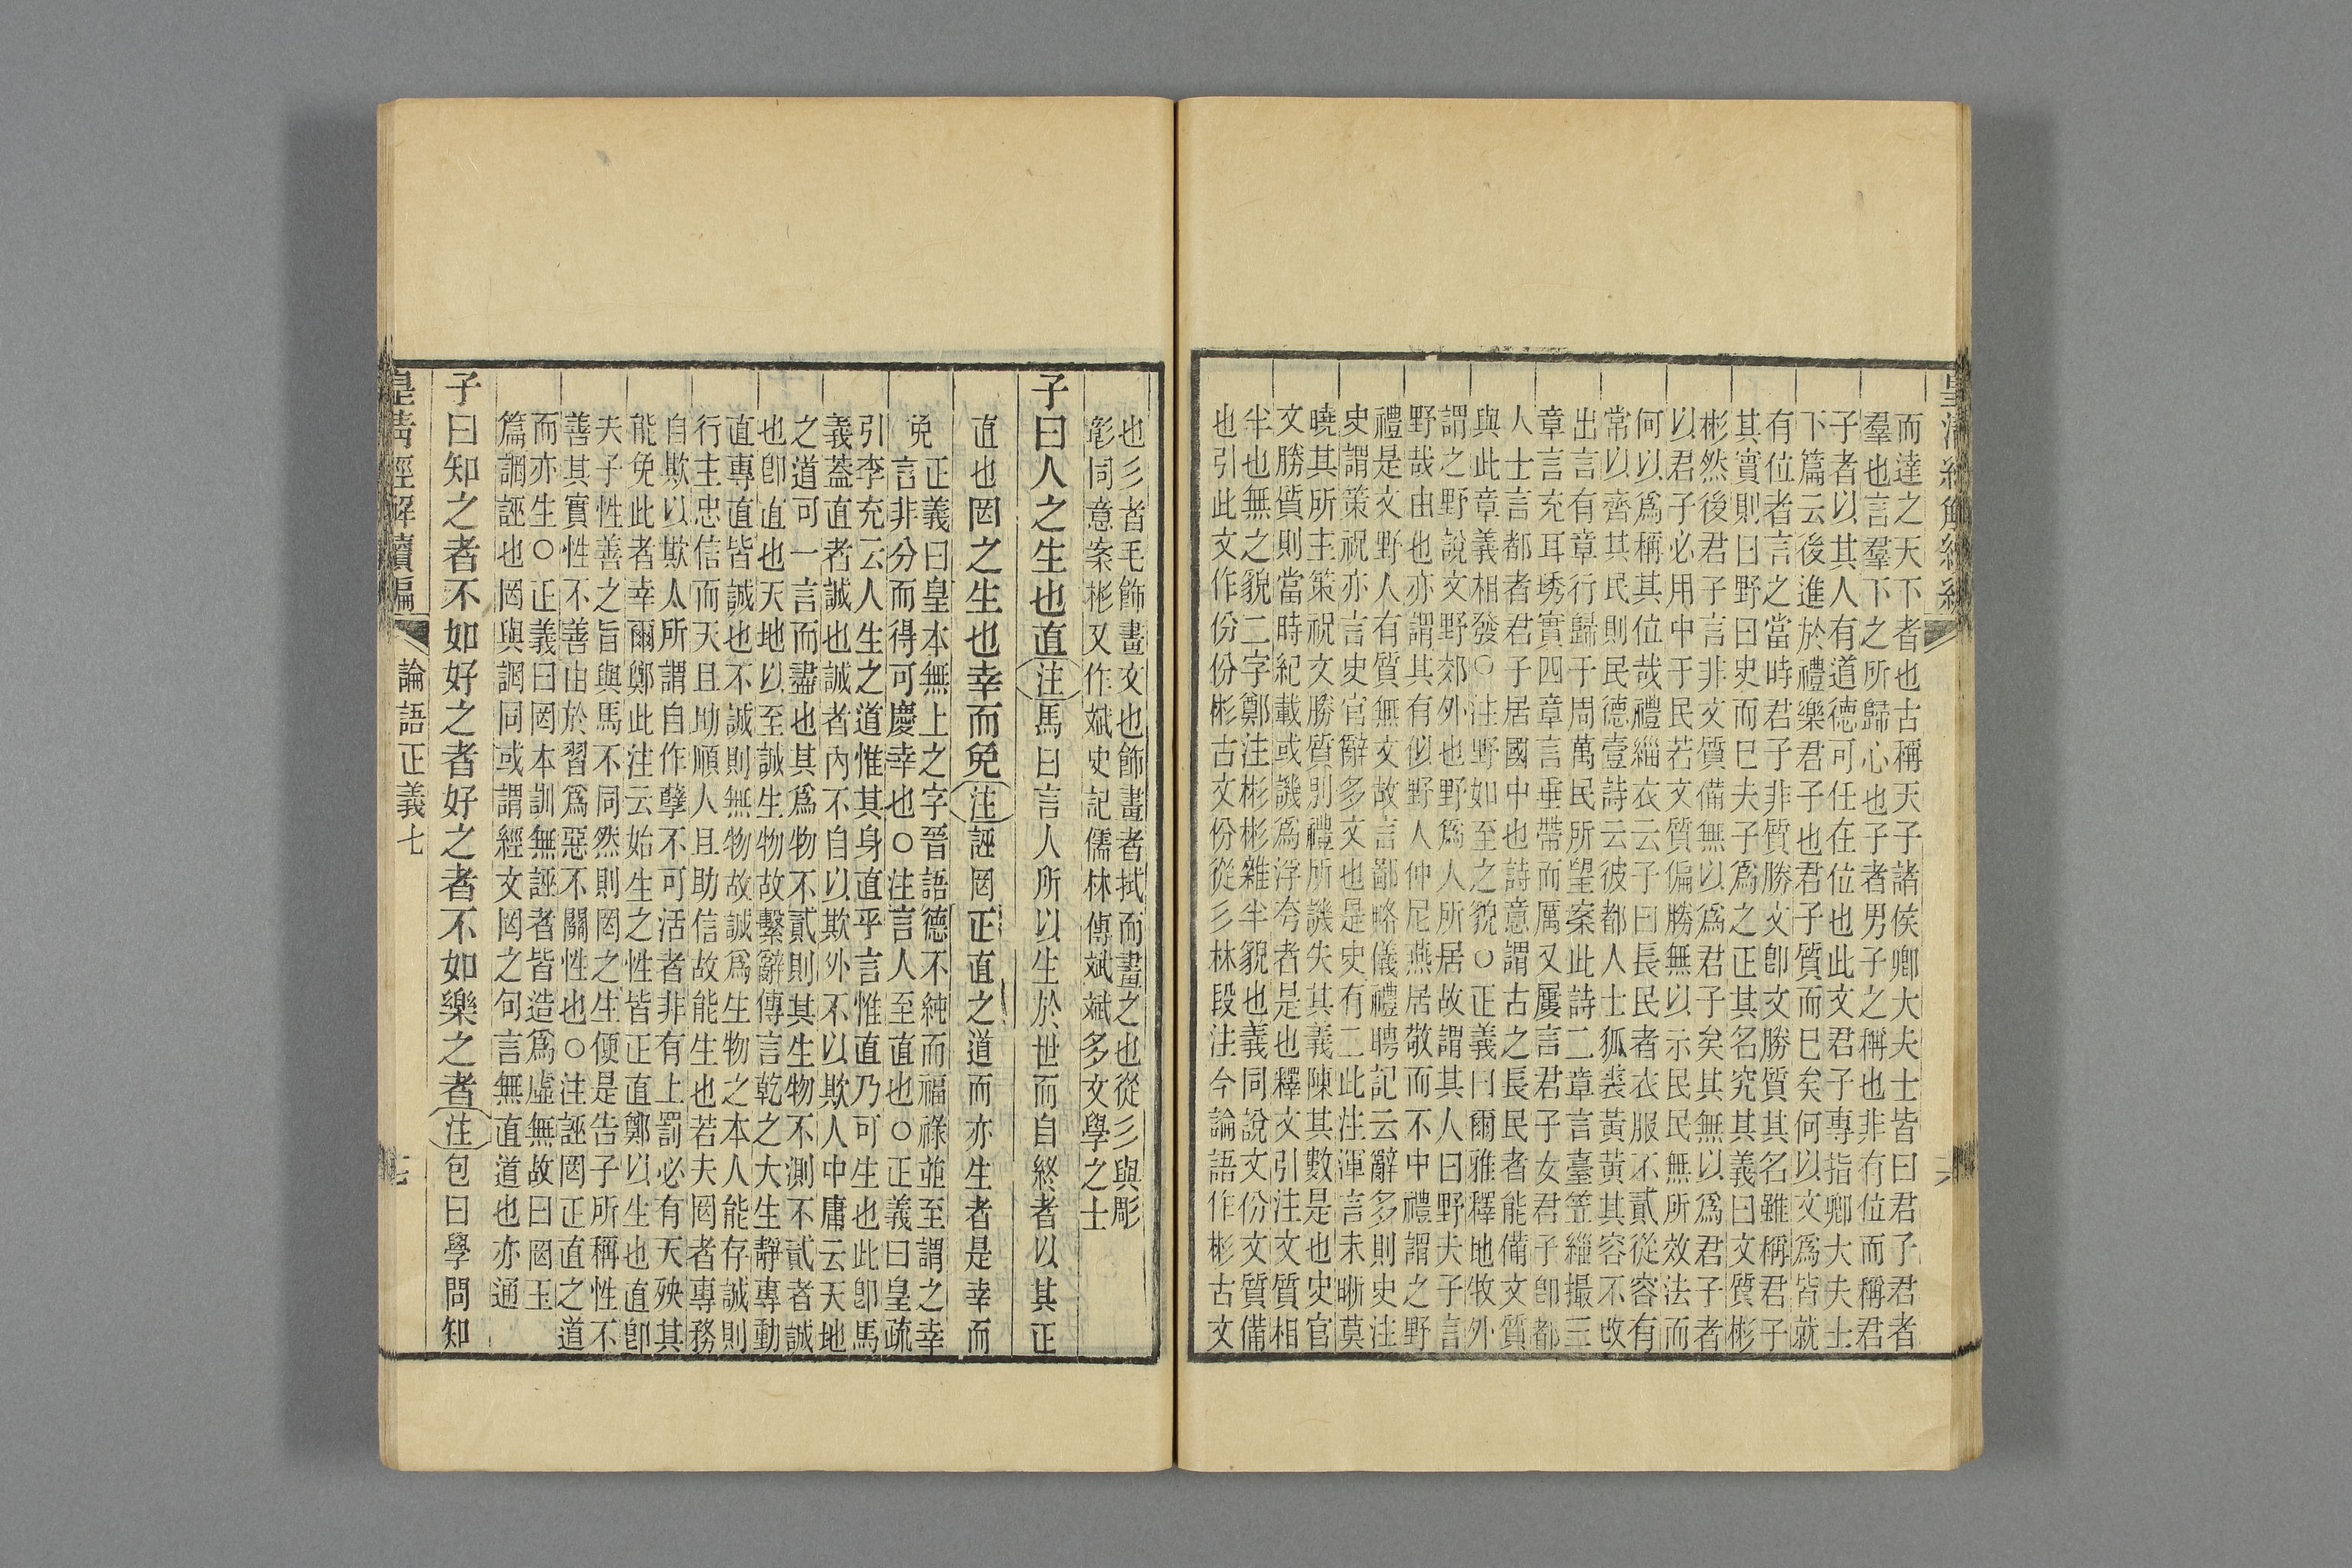 而達之天下者也古稱天子諸侯卿大夫士皆曰君子君者
羣也言羣下之所歸心也子者男子之稱也非有位而稱君
子者以其人有道德可任在位也此文君子專指卿大夫士
下篇云後進於禮樂君子也君子質而已矣何以文爲皆就
有位者言之當時君子非質勝文卽文勝質其名雖稱君子
其實則曰野曰史而已夫子爲之正其名究其義曰文質彬
彬然後君子言非文質備無以爲君子矣其無以爲君子者
以君子必用中于民若文質偏勝無以示民民無所效法而
何以爲稱其位哉禮緇衣云子曰長民者衣服不貳從容有
常以齊其民則民德壹詩云彼都人士狐裘黃黃其容不改
出言有章行歸于周萬民所望案此詩二章言臺笠緇撮三
章言充耳琇實四章言垂帶而厲又屢言君子女君子卽都
人士言都者君子居國中也詩意謂古之長民者能備文質
與此章義相發○注野如至之貌○正義曰爾雅釋地牧外
謂之野說文野郊外也野爲人所居故謂其人曰野夫子言
野哉由也亦謂其有似野人仲尼燕居敬而不中禮謂之野
禮是文野人有質無文故言鄙略儀禮聘記云辭多則史注
史謂策祝亦言史官辭多文也是史有二此注渾言未晰莫
曉其所主策祝文勝質則禮所譏失其義陳其數是也史官
文勝質則當時紀載或譏爲浮夸者是也釋文引注文質相
半也無之貌二字鄭注彬彬雜半貌也義同說文份文質備
也引此文作份份彬古文份從彡林段注今論語作彬古文
也彡者毛飾畫文也飾畫者拭而畫之也從彡與彫
彰同意案彬又作斌史記儒林傳斌斌多文學之士
子曰人之生也直注馬曰言人所以生於世而自終者以其正
直也罔之生也幸而免注誣罔正直之道而亦生者是幸而
免
正義曰皇本無上之字晉語德不純而福祿並至謂之幸
言非分而得可慶幸也○注言人至直也○正義曰皇疏
引李充云人生之道惟其身直乎言惟直乃可生也此卽馬
義蓋直者誠也誠者內不自以欺外不以欺人中庸云天地
之道可一言而盡也其爲物不貳則其生物不測不貳者誠
也卽直也天地以至誠生物故繫辭傳言乾之大生靜專動
直專直皆誠也不誠則無物故誠爲生物之本人能存誠則
行主忠信而天且助順人且助信故能生也若夫罔者專務
自欺以欺人所謂自作孽不可活者非有上罰必有天殃其
能免此者幸爾鄭此注云始生之性皆正直鄭以生也直卽
夫子性善之旨與馬不同然則罔之生便是告子所稱性不
善其實性不善由於習爲惡不關性也○注誣罔正直之道
而亦生○正義曰罔本訓無誣者皆造爲虛無故曰罔玉
篇誷誣也罔與誷同或謂經文罔之句言無直道也亦通
子曰知之者不如好之者好之者不如樂之者注包曰學問知
皇淸經解續編 論語正義七